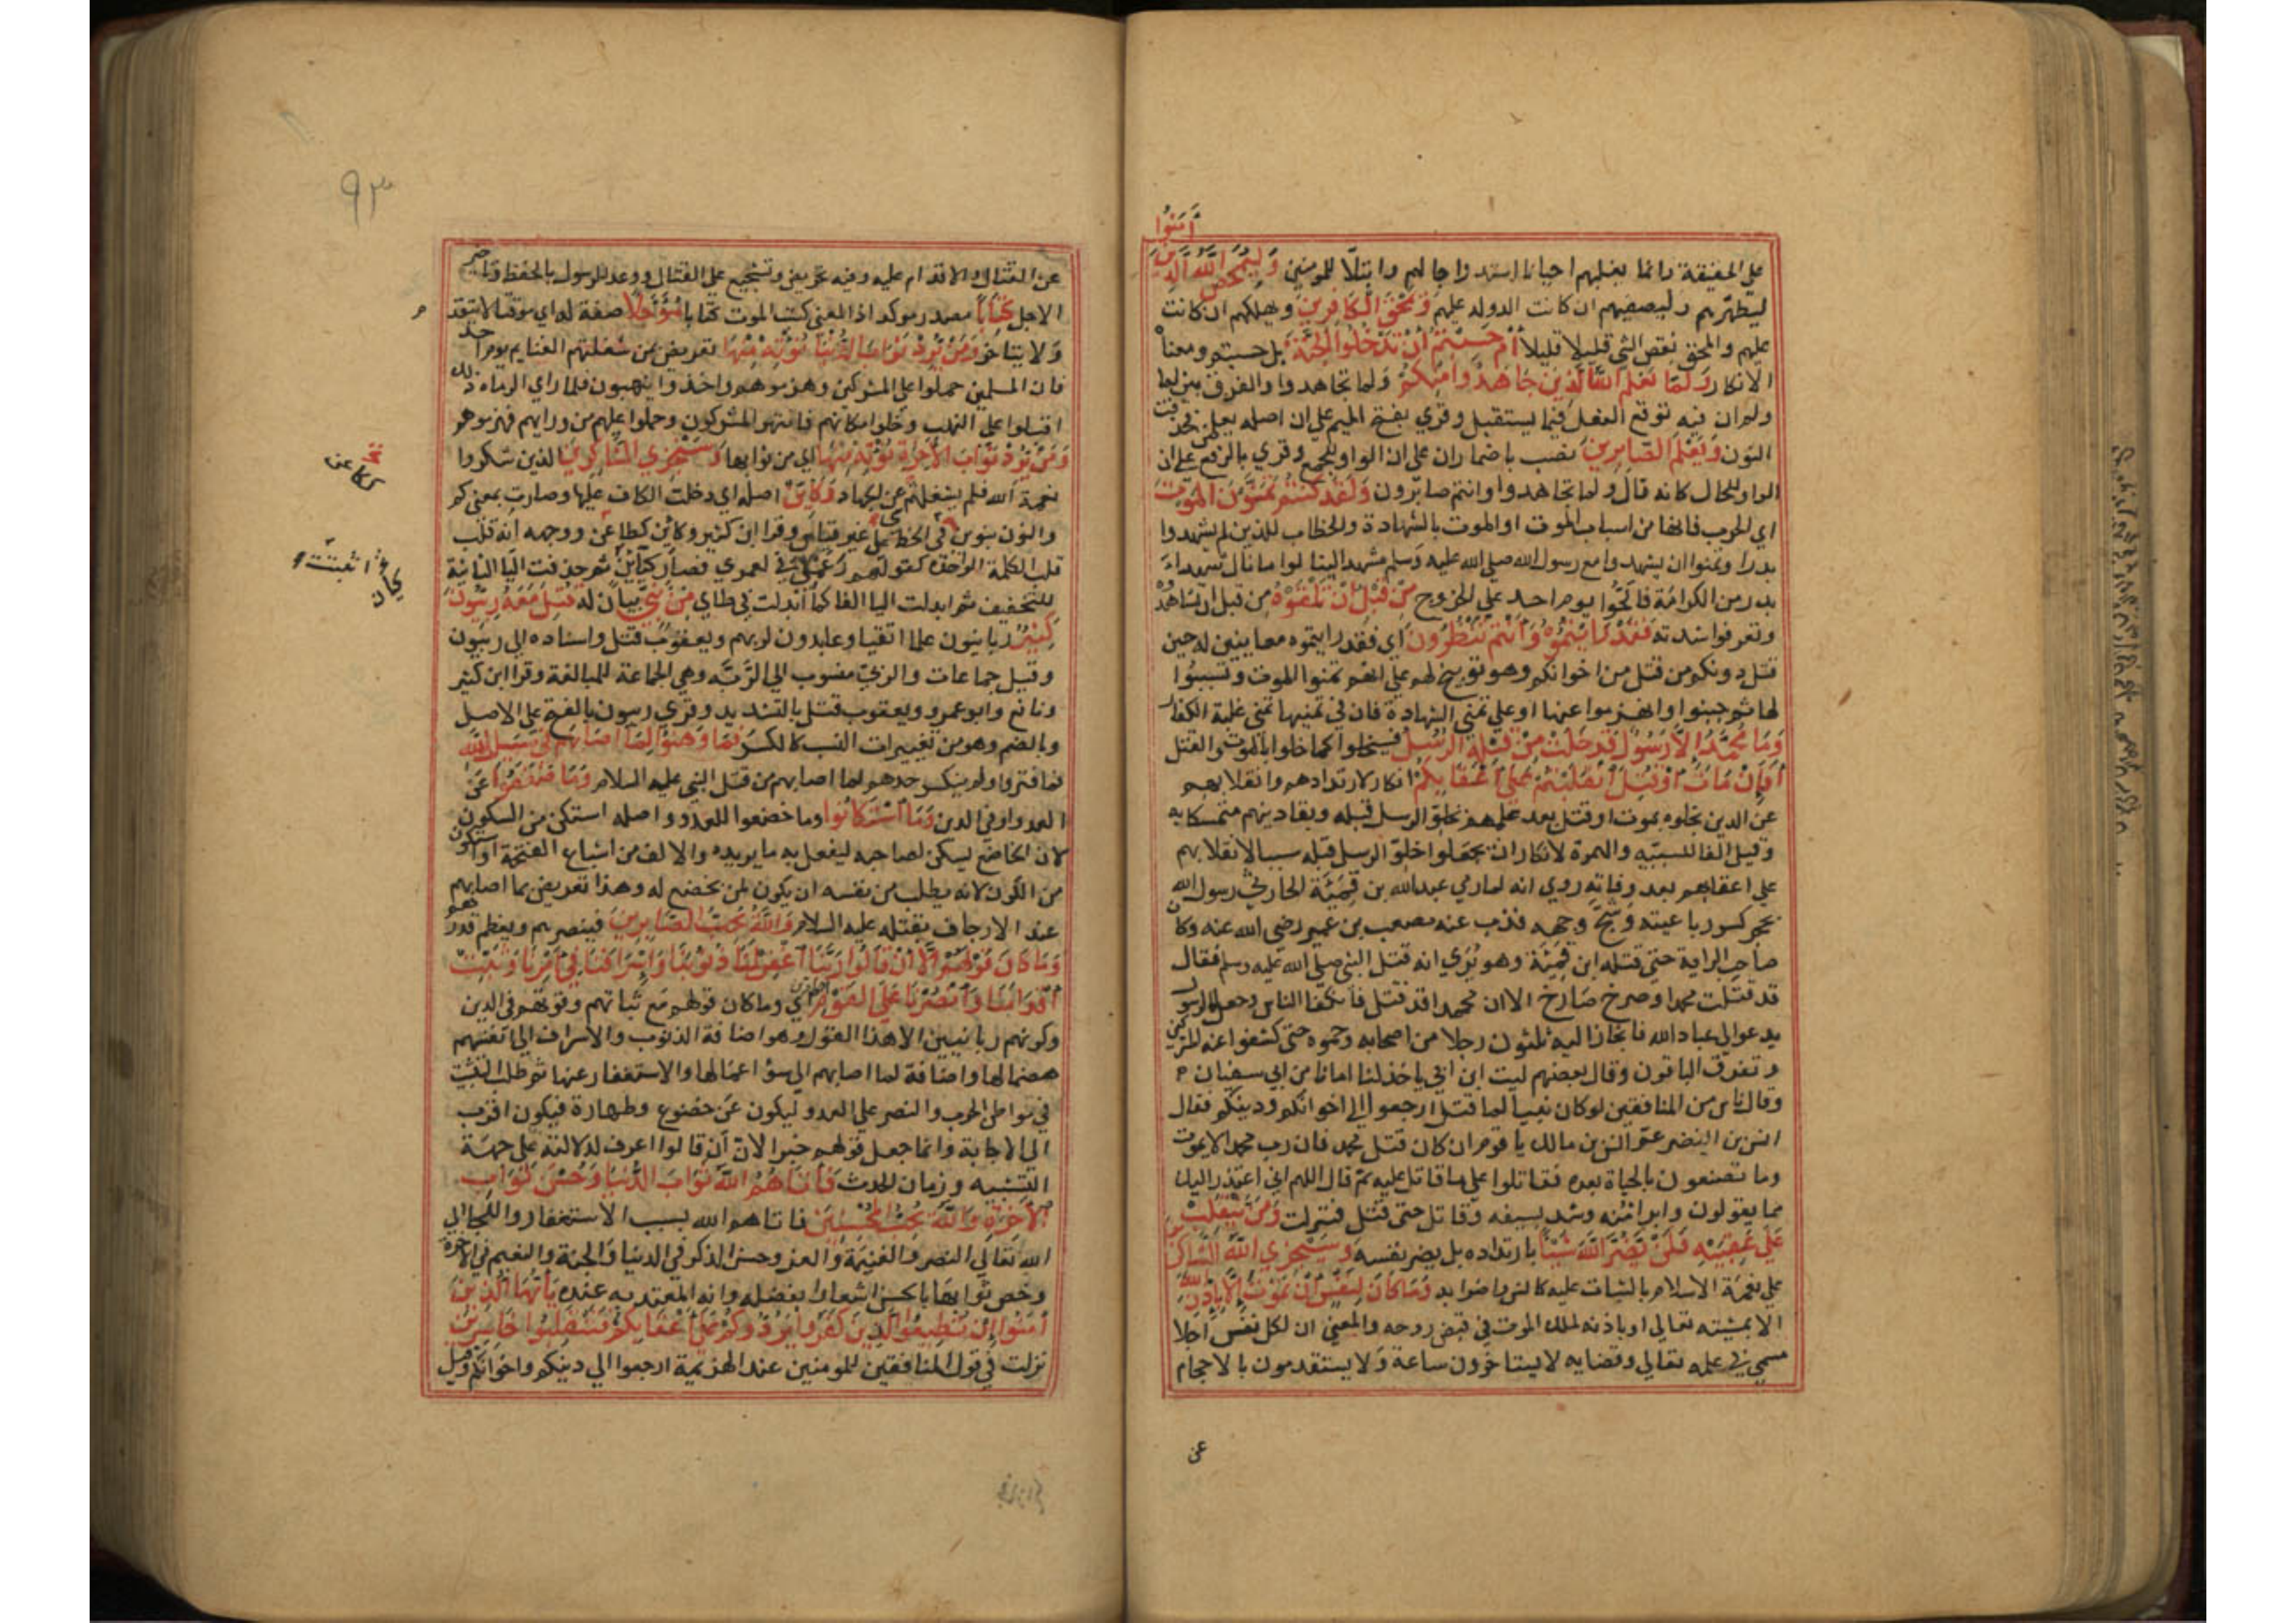 اٰمَنُوا
على الحقيقة وانما يغلبهم احيانا استدراجا لهم وابتلا للمومنين وَلِيُمَحِّصَ اللّٰهُ الَّذِينَ
ليطهّرهم وليصفيهم ان كانت الدولة عليهم وَيَمْحَقَ الْكَافِرِينَ ويهلكهم ان كانت
عليهم والمحق نقص الشي قليلا قليلا أَمْ حَسِبْتُمْ أَنْ تَدْخُلُوا الْجَنَّةَ بل حسبتم ومعناه
الانكار وَلَمَّا يَعْلَمِ اللّٰهُ الَّذِينَ جَاهَدُوا مِنْكُمْ ولما تجاهدوا والفرق بين لما
ولم ان فيه توقع الفعل فيما يستقبل وقري بفتح الميم على ان اصله يعلمن فحذفت
النون وَيَعْلَمَ الصَّابِرِينَ نصب باضمار ان على ان الواو للجمع وقري بالرفع على ان
الواو للحال كانه قال ولما تجاهدوا وانتم صابرون وَلَقَدْ كُنْتُمْ تَمَنَّوْنَ الْمَوْتَ
اي الحرب فانها من اسباب الموت او الموت بالشهادة والخطاب للذين لم يشهدوا
بدرا وتمنوا ان يشهدوا مع رسول الله صلي الله عليه وسلم مشهدا لينالوا ما نال شهداء
بدر من الكرامة فالحّوا يوم احد علي الخروج مِنْ قَبْلِ أَنْ تَلْقَوْهُ من قبل ان تشاهدوه
وتعرفوا شدته فَقَدْ رَأَيْتُمُوهُ وَأَنْتُمْ تَنْظُرُونَ اي فقد رايتموه معاينين له حين
قتل دونكم من قتل من اخوانكم وهو توبيخ لهم علي انهم تمنوا الموت وتسببوا
لها ثم جبنوا وانهزموا عنها او علي تمني الشهادة فان في تمنيها تمني غلبة الكفار
وَمَا مُحَمَّدٌ إِلَّا رَسُولٌ قَدْ خَلَتْ مِنْ قَبْلِهِ الرُّسُلُ فيخلوا كما خلوا بالموت والقتل
أَفَإِنْ مَاتَ أَوْ قُتِلَ انْقَلَبْتُمْ عَلَى أَعْقَابِكُمْ انكار لارتدادهم وانقلابهم
عن الدين بخلوه بموت او قتل بعد علمهم بخلو الرسل قبله وبقا دينهم متمسكا به
وقيل الفا للسببية والهمزة لانكار ان يجعلوا خلو الرسل قبله سببا لانقلابهم
على اعقابهم بعد وفاته روي انه لما رمي عبدالله بن قميئة الحارثي رسول الله
بحجر كسر رباعيته وشج وجهه فذب عنه مصعب بن عمير رضي الله عنه وكان
صاحب الراية حتى قتله ابن قميئة وهو يُري انه قتل النبي صلي الله عليه وسلم فقال
قد قتلت محمدا وصرخ صارخ الا ان محمدا قد قتل فانكفا الناس وجعل الرسول
يدعو الي عباد الله فانحاز اليه ثلثون رجلا من اصحابه وحموه حتى كشفوا عنه المشركين
وتفرق الباقون وقال بعضهم ليت ابن ابي ياخذ لنا امانا من ابي سفيان
وقال ناس من المنافقين لو كان نبيا لما قتل ارجعوا الي اخوانكم ودينكم فقال
انس بن النضر عم انس بن مالك يا قوم ان كان قتل محمد فان رب محمد لا يموت
وما تصنعون بالحياة بعده فقاتلوا علي ما قاتل عليه ثم قال اللهم اني اعتذر اليك
مما يقولون وابرا منه وشد بسيفه وقاتل حتى قتل فنزلت وَمَنْ يَنْقَلِبْ
عَلَى عَقِبَيْهِ فَلَنْ يَضُرَّ اللّٰهَ شَيْئًا بارتداده بل يضر نفسه وَسَيَجْزِي اللّٰهُ الشَّاكِرِينَ
علي نعمة الاسلام بالثبات عليه كانس واضرابه وَمَا كَانَ لِنَفْسٍ أَنْ تَمُوتَ إِلَّا بِإِذْنِ اللّٰهِ
الا بمشيته تعالى او باذنه لملك الموت في قبض روحه والمعني ان لكل نفس اجلا
مسمى في علمه تعالي وقضايه لا يستاخرون ساعة ولا يستقدمون بالاحجام
عن
٩٣
عن القتال والاقدام عليه وفيه تحريض وتشجيع علي القتال ووعد للرسول بالحفظ وتاخير
الاجل كِتَابًا مصدر موكد اذ المعني كتب الموت كتابا مُؤَجَّلًا صفة له اي موقتا لا يتقدم
ولا يتاخر وَمَنْ يُرِدْ ثَوَابَ الدُّنْيَا نُؤْتِهِ مِنْهَا تعريض بمن شغلتهم الغنايم يوم احد
فان المسلمين حملوا علي المشركين وهزموهم واخذوا ينهبون فلما راي الرماه ذلك
اقبلوا على النهب وخلوا مكانهم فانتهز المشركون وحملوا عليهم من ورايهم فهزموهم
وَمَنْ يُرِدْ ثَوَابَ الْآخِرَةِ نُؤْتِهِ مِنْهَا اي من ثوابها وَسَنَجْزِي الشَّاكِرِينَ الذين شكروا
نعمة الله فلم يشغلهم عن الجهاد وَكَأَيِّنْ اصله اي دخلت الكاف عليها وصارت بمعني كم
والنون تنوين في الخط علي غير قياس وقرا ابن كثير وكائن كطاعن ووجهه انه قلب
قلب الكلمة الواحدة كقولهم رعملي في لعمري فصار كيّأين ثم حذفت اليا الثانية
للتخفيف ثم ابدلت اليا الفا كما ابدلت في طاي مِنْ نَبِيٍّ بيان له قُتِلَ مَعَهُ رِبِّيُّونَ
كَثِيرٌ ربانيون علما اتقيا وعابدون لربهم ويعقوب قتل واسناده الي ربيون
وقيل جماعات والربيّ منسوب الي الرَّبّة وهي الجماعة للمبالغة وقرا ابن كثير
ونافع وابو عمرو ويعقوب قتل بالتشديد وقري ربيون بالفتح على الاصل
وبالضم وهو من تغييرات النسب كالكسر فَمَا وَهَنُوا لِمَا أَصَابَهُمْ فِي سَبِيلِ اللّٰهِ
فما فتروا ولم ينكسر حدهم لما اصابهم من قتل النبي عليه السلام وَمَا ضَعُفُوا عن
العدو او في الدين وَمَا اسْتَكَانُوا وما خضعوا للعدو واصله استكن من السكون
لان الخاضع يسكن لصاحبه ليفعل به ما يريده والالف من اشباع الفتحة او استكون
من الكون لانه يطلب من نفسه ان يكون لمن يخضع له وهذا تعريض بما اصابهم
عند الارجاف بقتله عليه السلام وَاللّٰهُ يُحِبُّ الصَّابِرِينَ فينصرهم ويعظم قدرهم
وَمَا كَانَ قَوْلَهُمْ إِلَّا أَنْ قَالُوا رَبَّنَا اغْفِرْ لَنَا ذُنُوبَنَا وَإِسْرَافَنَا فِي أَمْرِنَا وَثَبِّتْ
أَقْدَامَنَا وَانْصُرْنَا عَلَى الْقَوْمِ الكافرين اي وما كان قولهم مع ثباتهم وقوتهم في الدين
وكونهم ربانيين الا هذا القول وهو اضافة الذنوب والاسراف الي انفسهم
هضما لها واضافة لما اصابهم الي سؤ اعمالها والاستغفار عنها ثم طلب التثبيت
في مواطن الحرب والنصر علي العدو ليكون عن خضوع وطهارة فيكون اقرب
الى الاجابة وانما جعل قولهم خبرا لان أن قالوا اعرف لدلالته على جهة
النسبه وزمان الحدث فَآتَاهُمُ اللّٰهُ ثَوَابَ الدُّنْيَا وَحُسْنَ ثَوَابِ
الْآخِرَةِ وَاللّٰهُ يُحِبُّ الْمُحْسِنِينَ فاتاهم الله بسبب الاستغفار واللجا الي
الله تعالي النصر والغنيمة والعز وحسن الذكر في الدنيا والجنة والنعيم في الاخرة
وخص ثوابها بالحسن اشعارا بفضله وانه المعتد به عنده يَا أَيُّهَا الَّذِينَ
آمَنُوا إِنْ تُطِيعُوا الَّذِينَ كَفَرُوا يَرُدُّوكُمْ عَلَى أَعْقَابِكُمْ فَتَنْقَلِبُوا خَاسِرِينَ
نزلت في قول المنافقين للمومنين عند الهزيمة ارجعوا الي دينكم واخوانكم وقيل